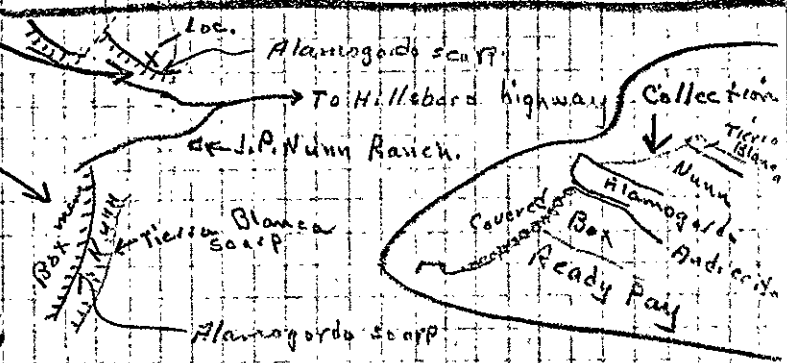 Loc.
Alamogordo scarp.
To Hillsboro highway
J.P. Nunn Ranch.
Box mem
Nunn
Tierra Blanca
scarp
Alamogordo scarp
Collection
Tierra
Blanca
Nunn
Alamogordo
Andrecito
Covered
Box
Ready Pay